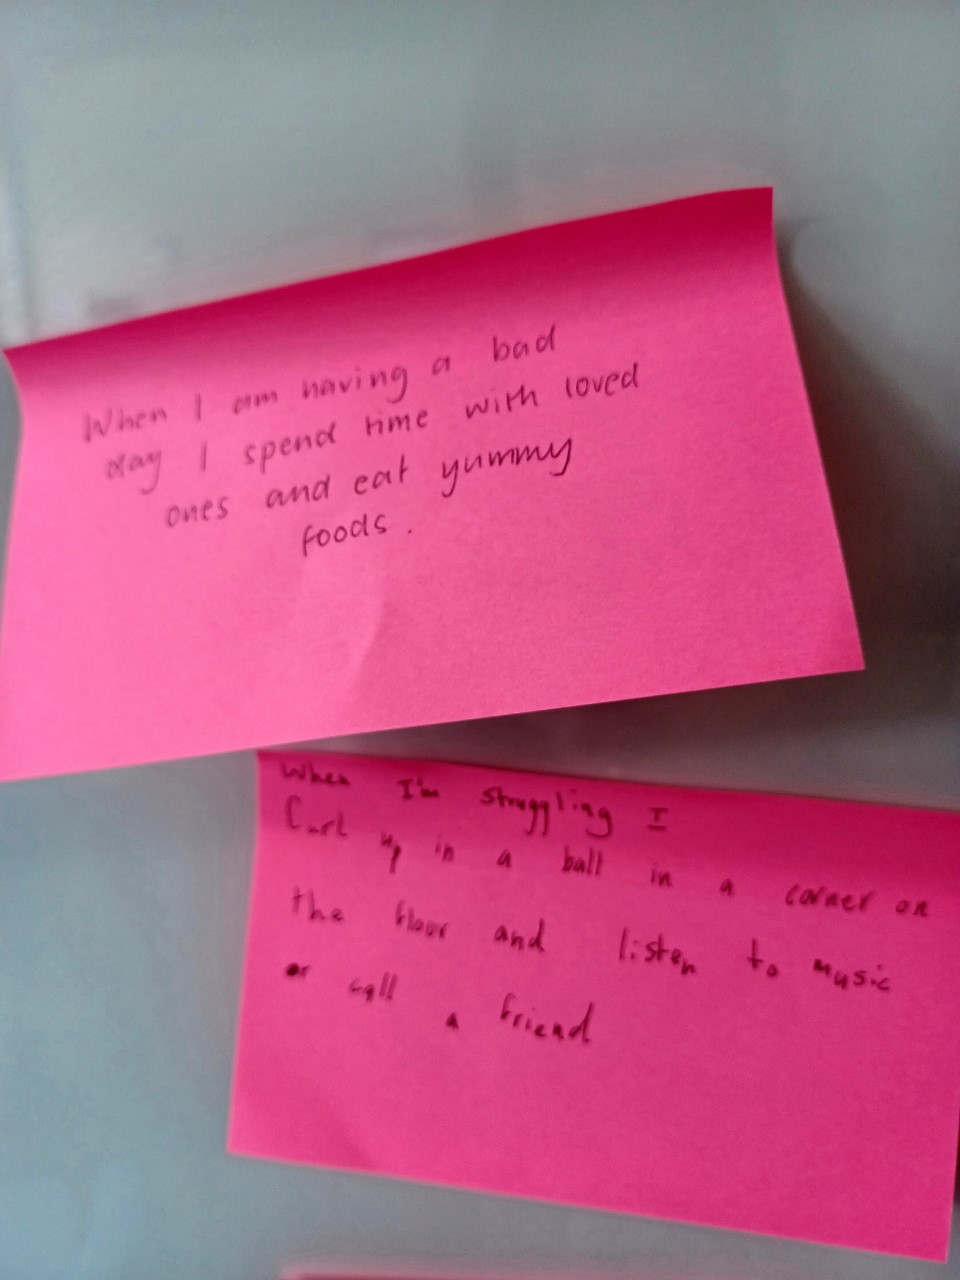 When I am having a bad
day I spend time with loved
ones and eat yummy
foods.
When I'm struggling I
Curl up in a ball in a corner on
the floor and listen to music
or call a friend